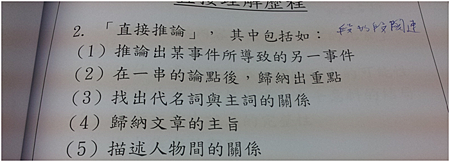 直接理解歷程
2. 「直接推論」, 其中包括如: 段的段關連
(1) 推論出某事件所導致的另一事件
(2) 在一串的論點後,歸納出重點
(3) 找出代名詞與主詞的關係
(4) 歸納文章的主旨
(5) 描述人物間的關係